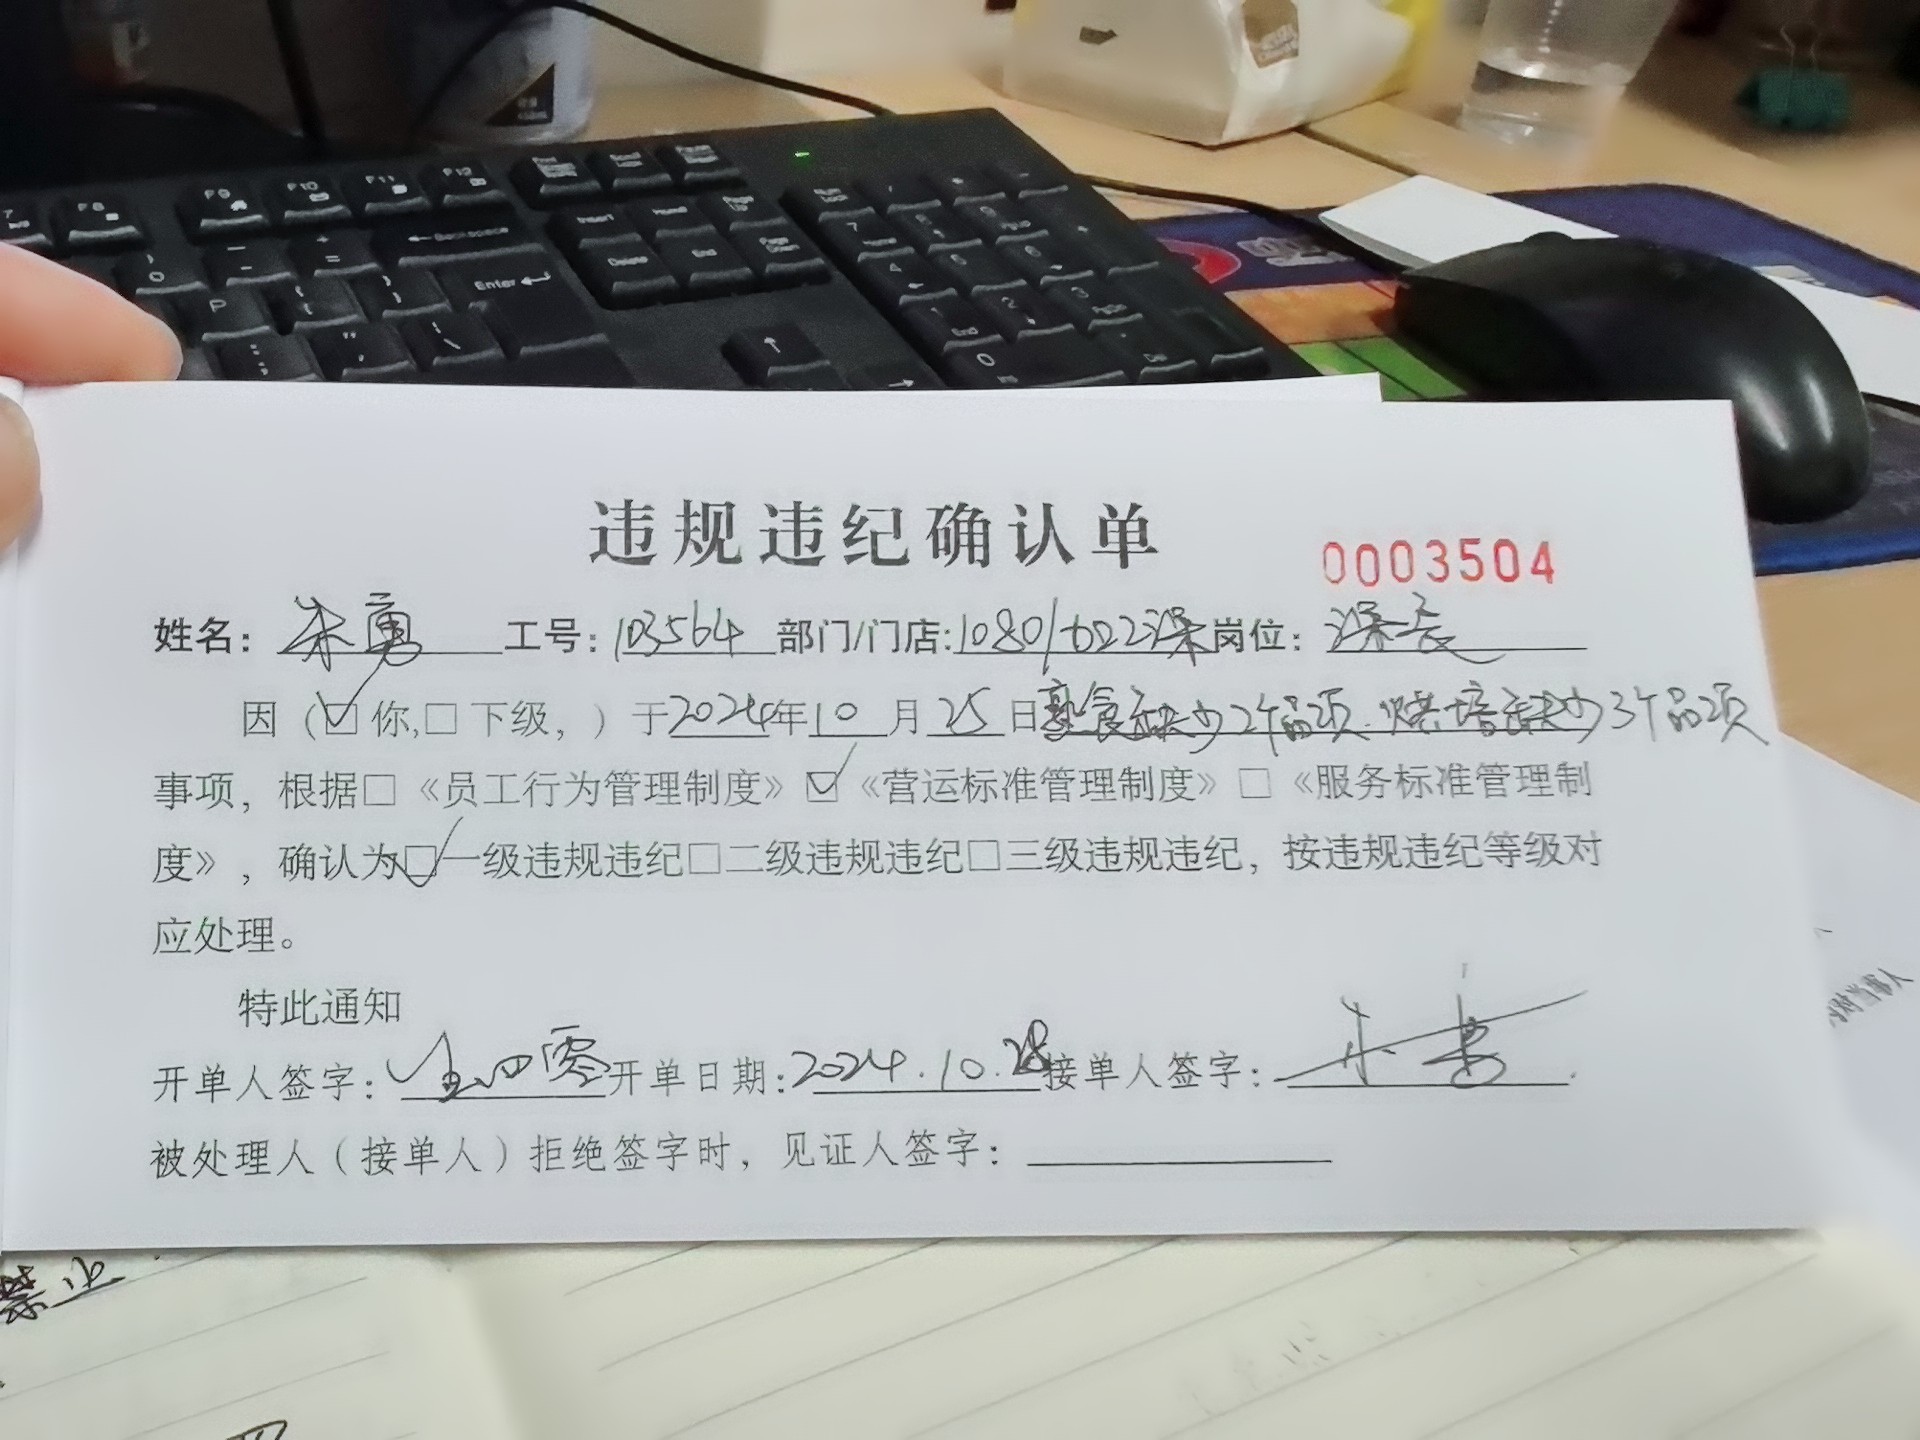 违规违纪确认单
0003504
姓名: 朱勇 工号: 103564 部门/门店: 1080/622课 岗位: 课长
因（☑你,□下级,）于2024年10月25日熟食缺少2个品项.烘培缺少3个品项
事项，根据□《员工行为管理制度》☑《营运标准管理制度》□《服务标准管理制
度》，确认为☑一级违规违纪□二级违规违纪□三级违规违纪，按违规违纪等级对
应处理。
特此通知
开单人签字: 开单日期: 2024.10.28 接单人签字:
被处理人（接单人）拒绝签字时，见证人签字:
F8
F9
F10
F11
F12
Backspace
Enter
Insert
Home
Page Up
Delete
End
Page Down
Num Lock
P